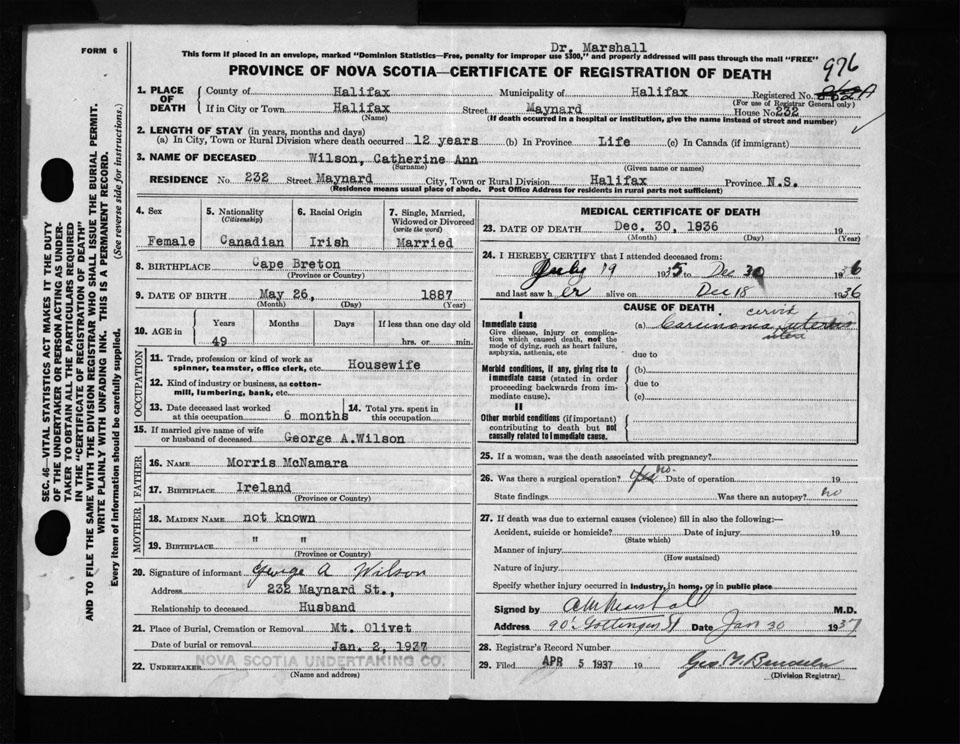 FORM 6
Dr. Marshall
This form if placed in an envelope, marked "Dominion Statistics—Free, penalty for improper use $300," and properly addressed will pass through the mail "FREE"
PROVINCE OF NOVA SCOTIA—CERTIFICATE OF REGISTRATION OF DEATH
976
1. PLACE OF DEATH
County of Halifax Municipality of Halifax Registered No. A
(For use of Registrar General only)
If in City or Town Halifax Street Maynard House No 232
(Name) (If death occurred in a hospital or institution, give the name instead of street and number)
2. LENGTH OF STAY (in years, months and days)
(a) In City, Town or Rural Division where death occurred 12 years (b) In Province Life (c) In Canada (if immigrant)
3. NAME OF DECEASED Wilson, Catherine Ann
(Surname) (Given name or names)
RESIDENCE No. 232 Street Maynard City, Town or Rural Division Halifax Province N.S.
(Residence means usual place of abode. Post Office Address for residents in rural parts not sufficient)
4. Sex
Female
5. Nationality
(Citizenship)
Canadian
6. Racial Origin
Irish
7. Single, Married, Widowed or Divorced
(write the word)
Married
8. BIRTHPLACE Cape Breton
(Province or Country)
9. DATE OF BIRTH May 26, 1887
(Month) (Day) (Year)
10. AGE in
Years Months Days If less than one day old
49 hrs. or min.
OCCUPATION
11. Trade, profession or kind of work as
spinner, teamster, office clerk, etc. Housewife
12. Kind of industry or business, as cotton-
mill, lumbering, bank, etc.
13. Date deceased last worked
at this occupation 6 months
14. Total yrs. spent in
this occupation
15. If married give name of wife
or husband of deceased George A. Wilson
FATHER
16. NAME Morris McNamara
17. BIRTHPLACE Ireland
(Province or Country)
MOTHER
18. MAIDEN NAME not known
19. BIRTHPLACE " "
(Province or Country)
20. Signature of informant George A Wilson
Address 232 Maynard St.,
Relationship to deceased Husband
21. Place of Burial, Cremation or Removal Mt. Olivet
Date of burial or removal Jan. 2, 1937
22. UNDERTAKER NOVA SCOTIA UNDERTAKING CO.
(Name and address)
MEDICAL CERTIFICATE OF DEATH
23. DATE OF DEATH Dec. 30, 1936 19
(Month) (Day) (Year)
24. I HEREBY CERTIFY that I attended deceased from:
July 19 1935 to Dec 30 1936
and last saw her alive on Dec 18 1936
CAUSE OF DEATH
I
Immediate cause
Give disease, injury or complica-
tion which caused death, not the
mode of dying, such as heart failure,
asphyxia, asthenia, etc
cervix
(a) Carcinoma uterus
uteri
due to
Morbid conditions, if any, giving rise to
immediate cause (stated in order
proceeding backwards from im-
mediate cause).
(b)
due to
(c)
II
Other morbid conditions (if important)
contributing to death but not
causally related to immediate cause.
25. If a woman, was the death associated with pregnancy?
26. Was there a surgical operation? no. Date of operation 19
State findings Was there an autopsy? no
27. If death was due to external causes (violence) fill in also the following:—
Accident, suicide or homicide? Date of injury 19
(State which)
Manner of injury
(How sustained)
Nature of injury
Specify whether injury occurred in industry, in home, or in public place
Signed by A M Marshall M.D.
Address 90 Gottingen St Date Jan 30 1937
28. Registrar's Record Number
29. Filed APR 5 1937 19
(Division Registrar)
SEC. 46—VITAL STATISTICS ACT MAKES IT THE DUTY
OF THE UNDERTAKER OR PERSON ACTING AS UNDER-
TAKER TO OBTAIN ALL THE PARTICULARS REQUIRED
IN THE "CERTIFICATE OF REGISTRATION OF DEATH"
AND TO FILE THE SAME WITH THE DIVISION REGISTRAR WHO SHALL ISSUE THE BURIAL PERMIT.
WRITE PLAINLY WITH UNFADING INK. THIS IS A PERMANENT RECORD.
Every item of information should be carefully supplied. (See reverse side for instructions.)